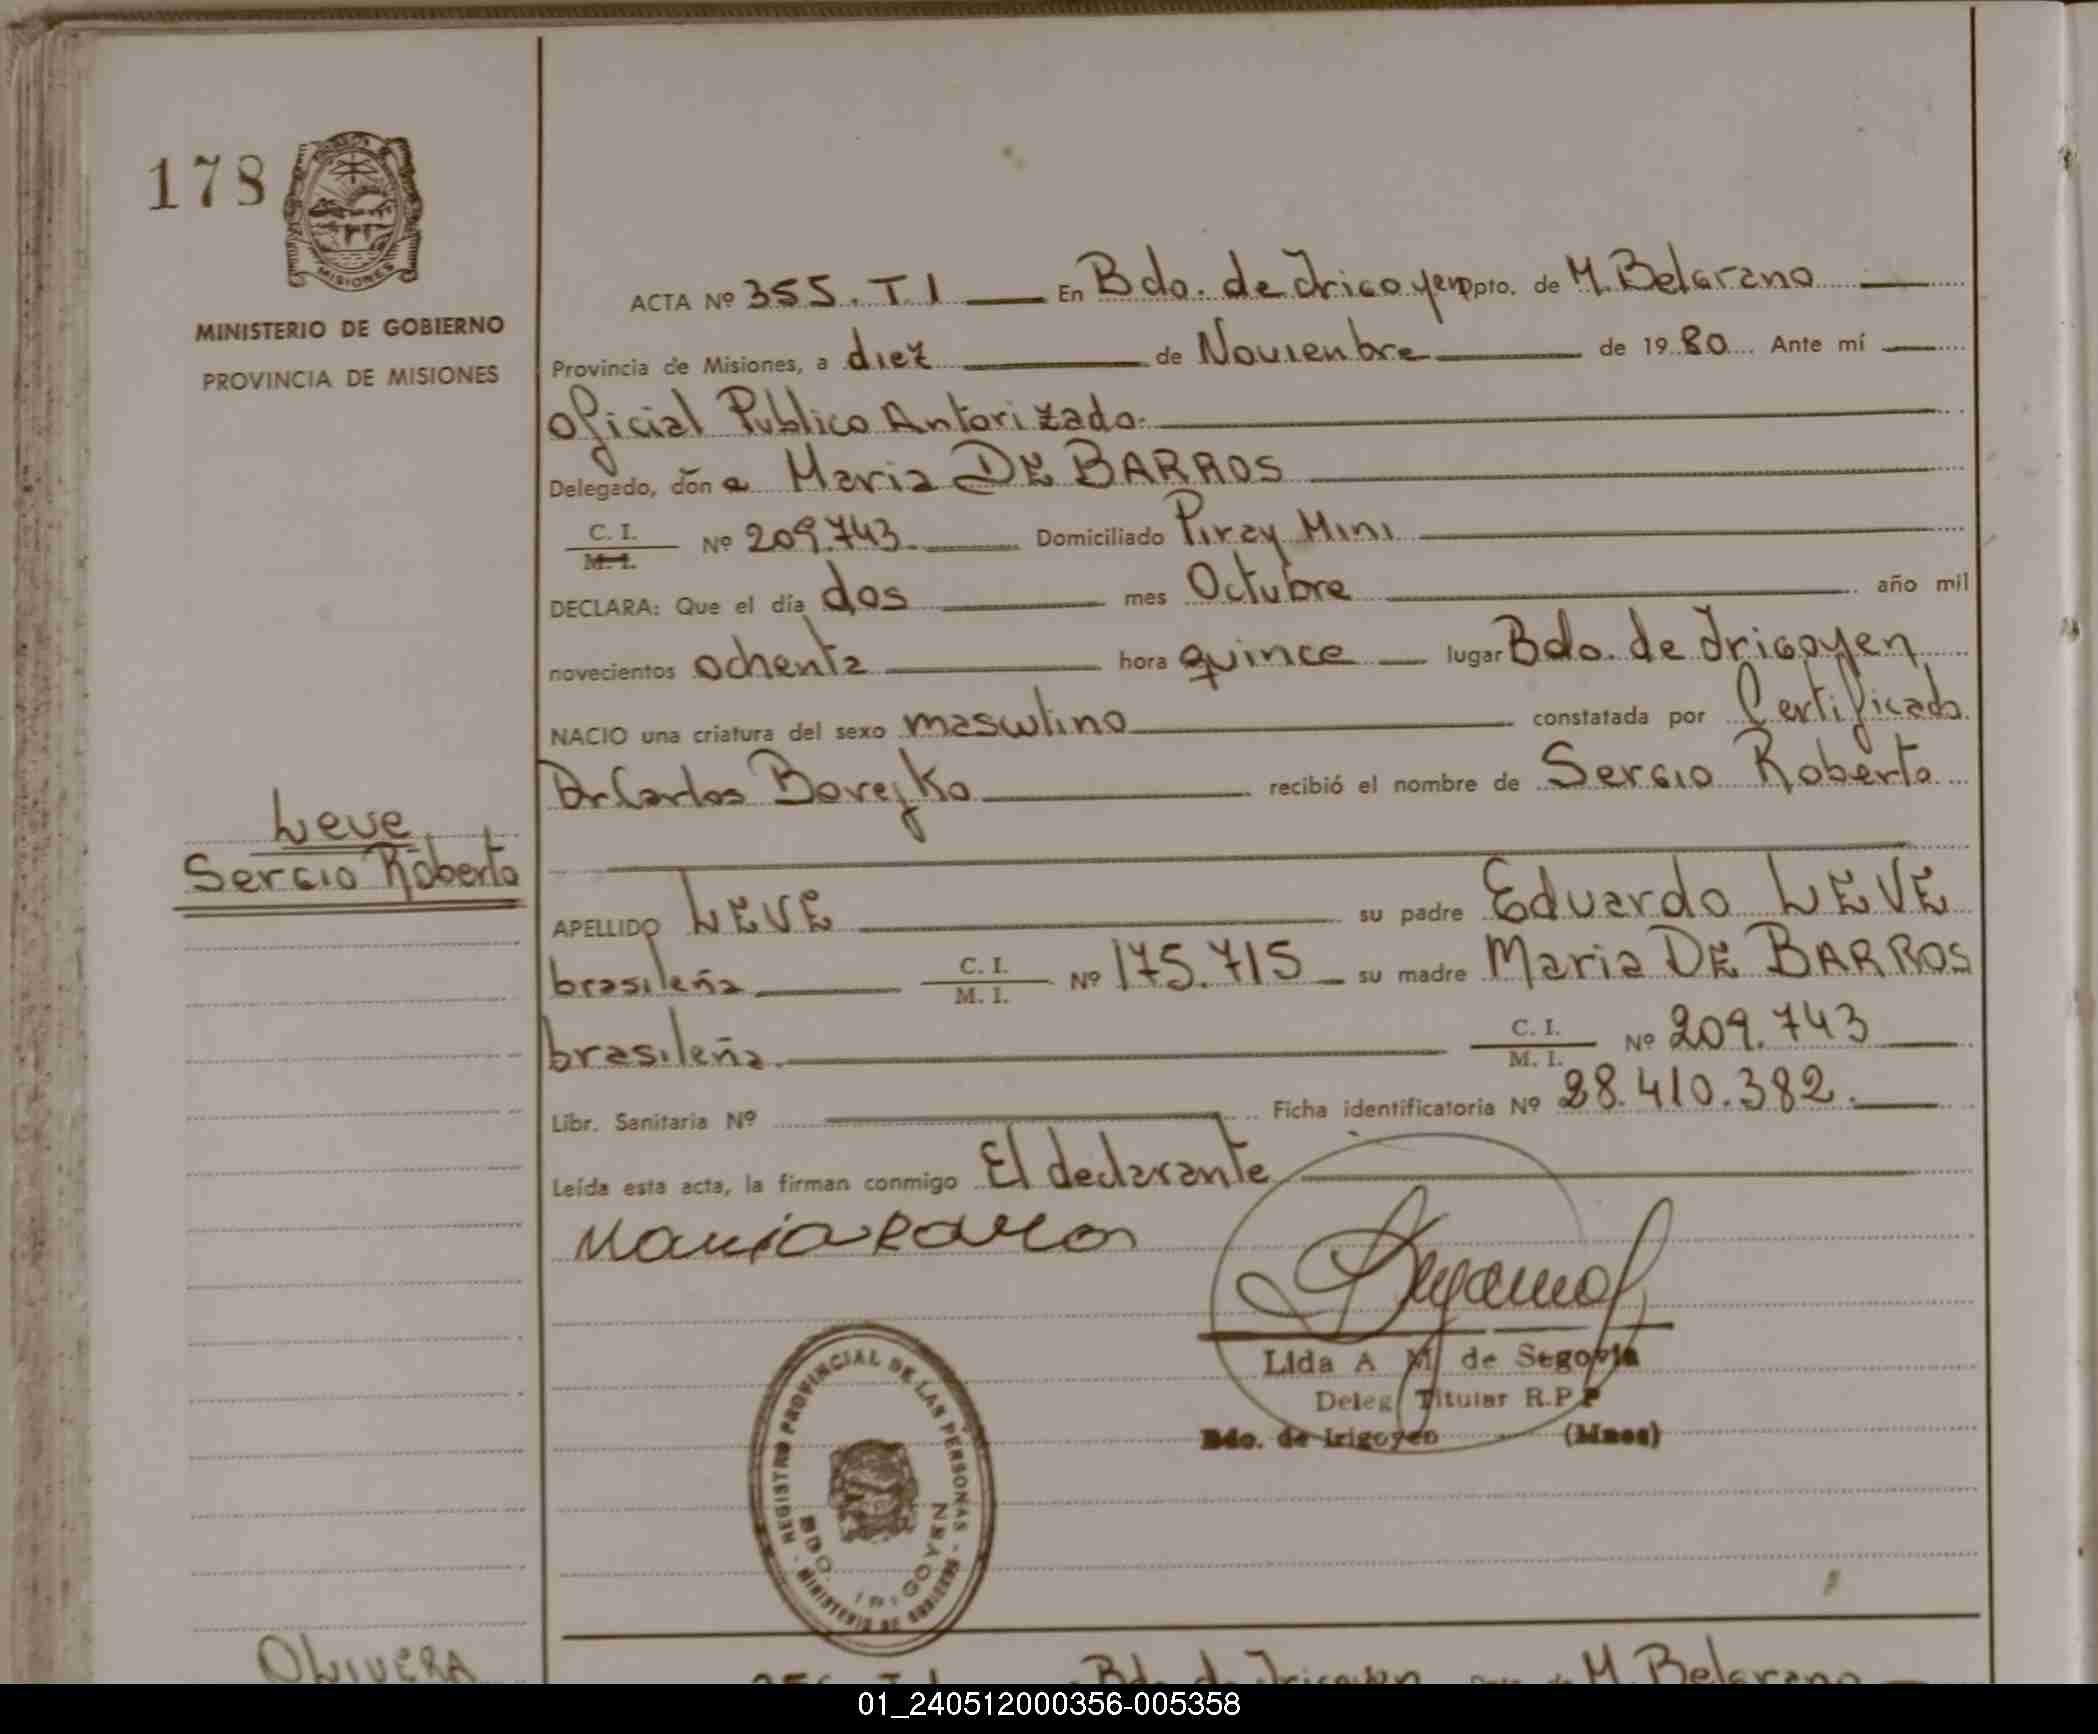 178
MISIONES
MINISTERIO DE GOBIERNO
PROVINCIA DE MISIONES
Leve
Sergio Roberto
ACTA Nº 355. T. I En Bdo. de Irigoyen Dpto. de M. Belgrano
Provincia de Misiones, a diez de Noviembre de 19 80 Ante mí
Oficial Publico Autorizado.
Delegado, don a Maria DE BARROS
C. I.
M. I. Nº 209.743. Domiciliado Piray Mini
DECLARA: Que el día dos mes Octubre año mil
novecientos ochenta hora quince lugar Bdo. de Irigoyen
NACIO una criatura del sexo masculino constatada por Certificado
Dr Carlos Borejko recibió el nombre de Sergio Roberto
APELLIDO LEVE su padre Eduardo LEVE
brasileña C. I. M. I. Nº 175.715 su madre Maria DE BARROS
brasileña C. I. M. I. Nº 209.743
Libr. Sanitaria Nº Ficha identificatoria Nº 28.410.382.
Leída esta acta, la firman conmigo El declarante
Lida A M de Segovia
Deleg Titular R.P P
Bdo. de Irigoyen (Mnes)
REGISTRO PROVINCIAL DE LAS PERSONAS - MINISTERIO DE GOBIERNO -
BDO. IRIGOYEN
OLIVERA
Bdo. de Irigoyen M. Belgrano
01_240512000356-005358